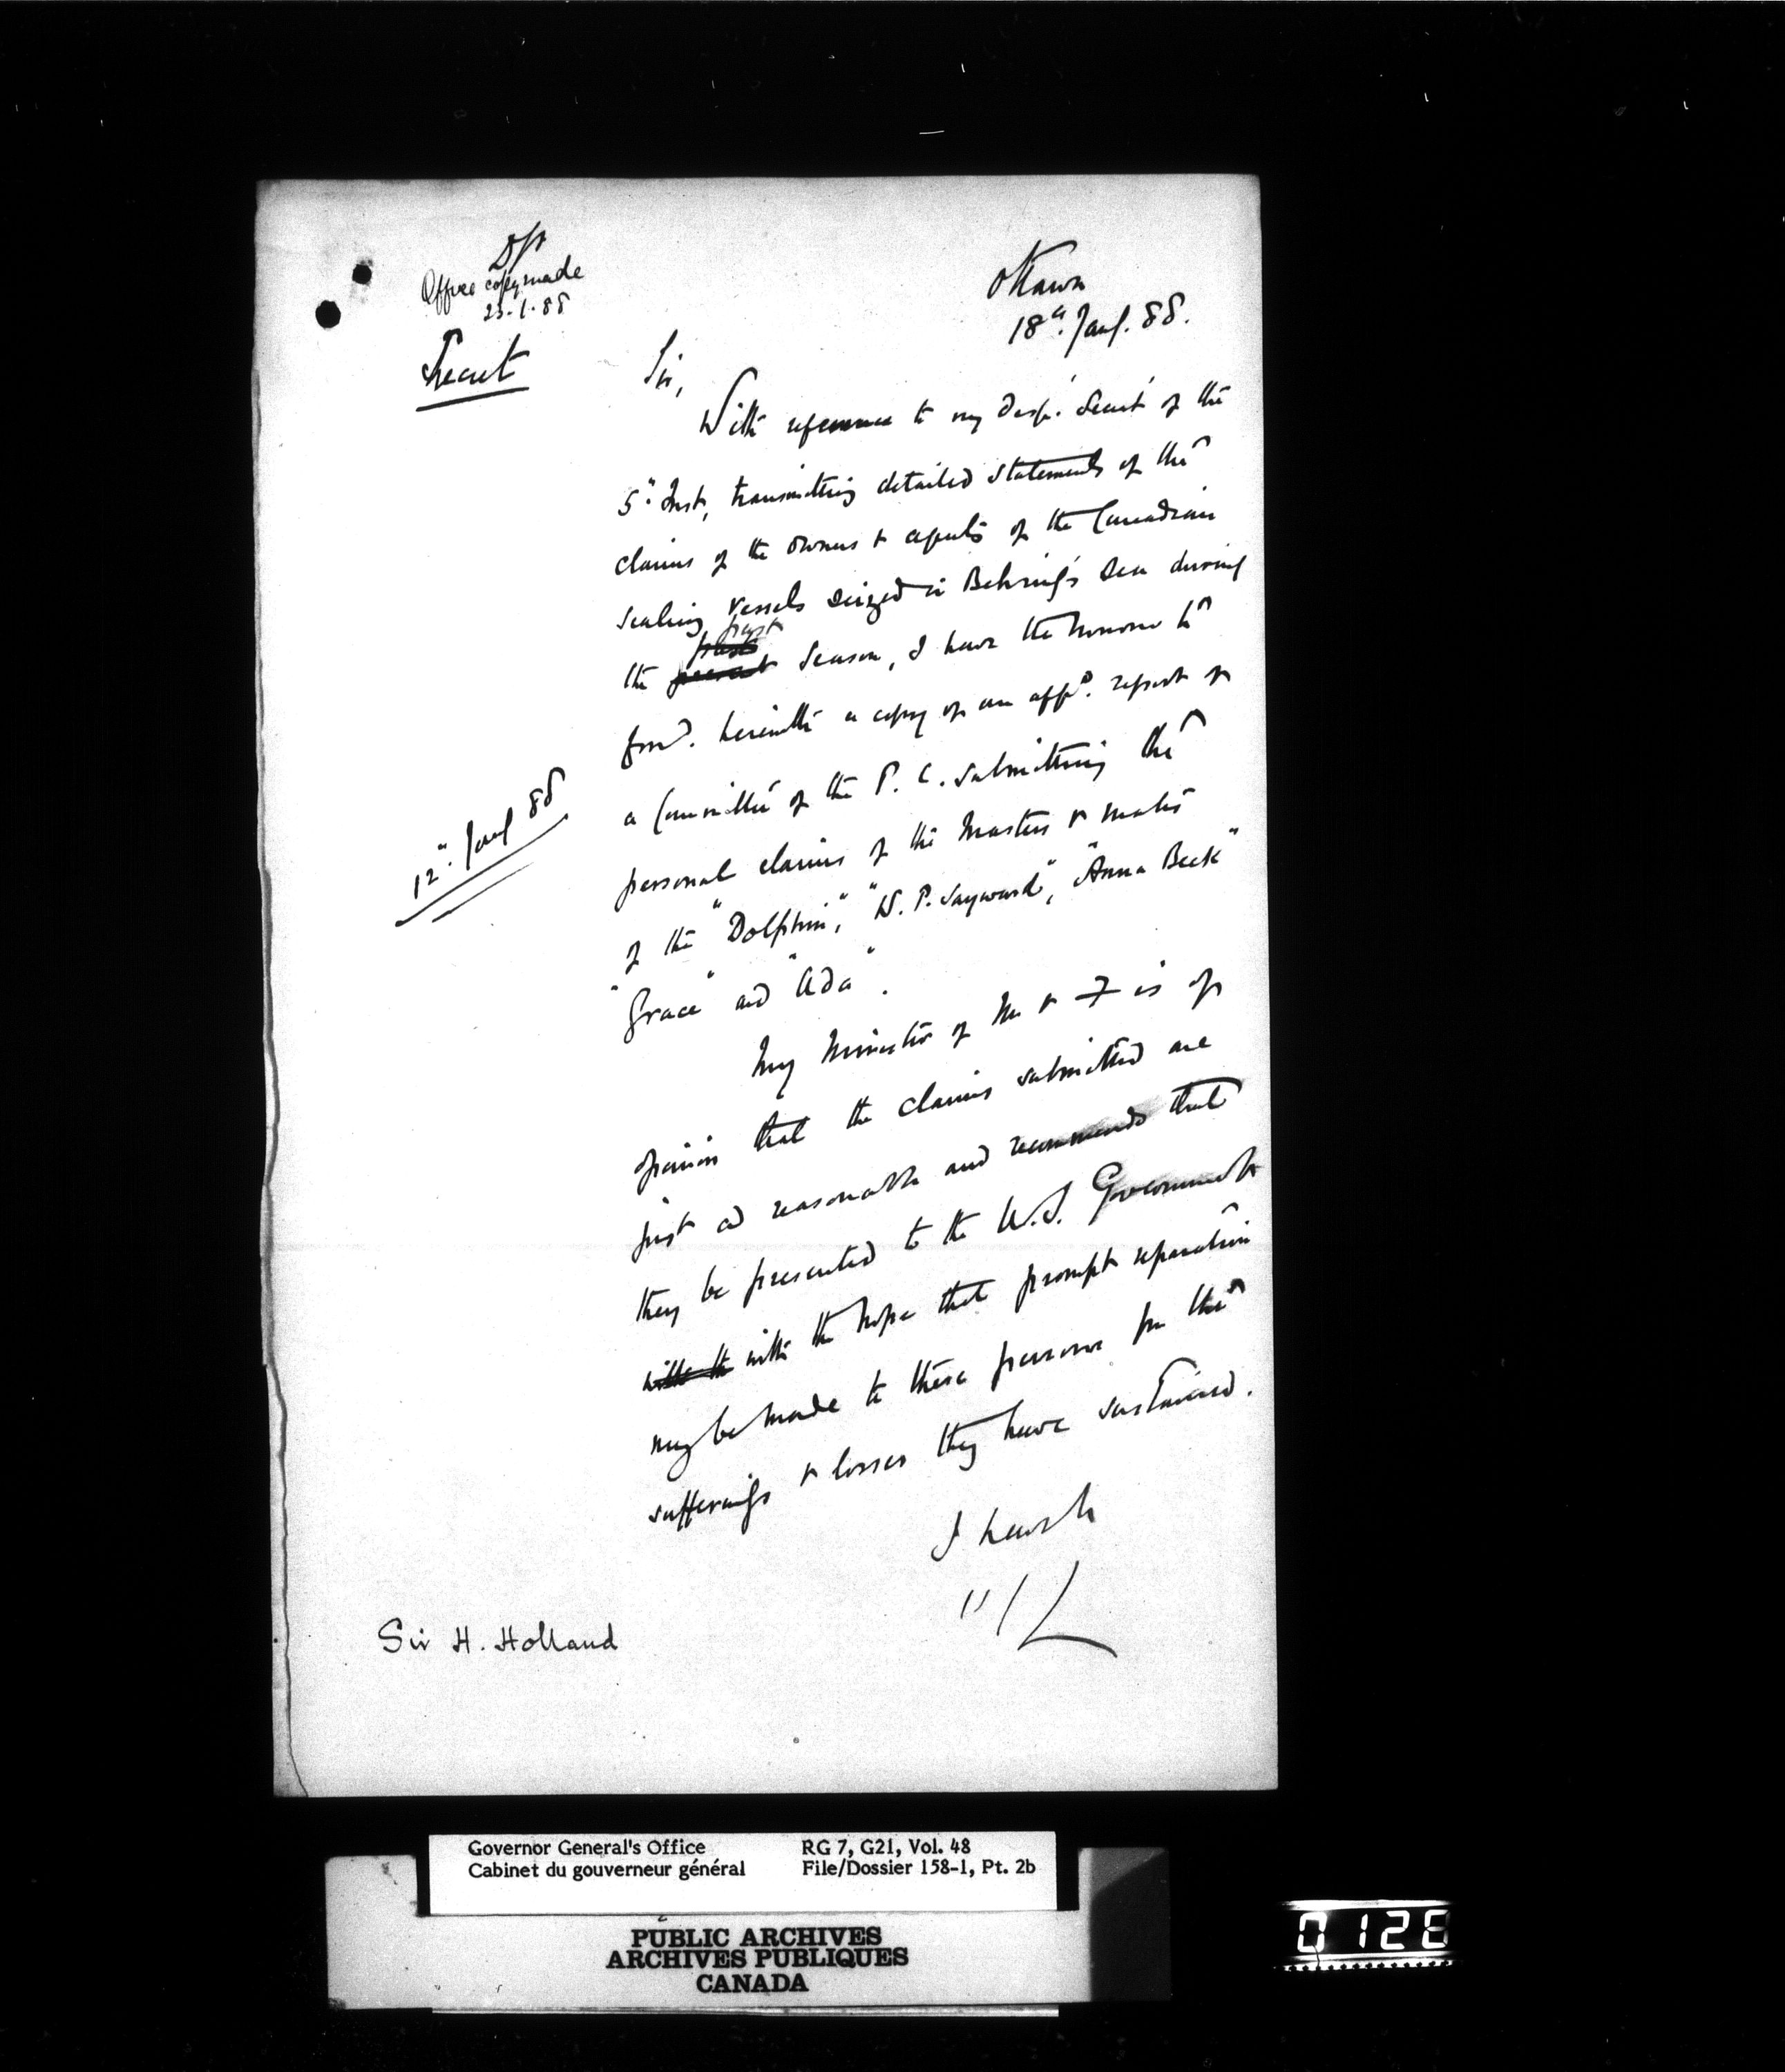 Dft
Office copy made
23-1-88
Secret
Ottawa
18th. Jany. 88.
Sir,
With reference to my desp. Secret of the
5th. Inst, transmitting detailed statements of the
claims of the owners & agents of the Canadian
sealing vessels seized in Behring's Sea during
past
the present season, I have the honour to
forwd. herewith a copy of an appd. report of
a Committee of the P. C. submitting the
12th. Jany 88
personal claims of the Masters & mates
of the "Dolphin", "W. P. Sayward", "Anna Beck"
"Grace" and "Ada".
My Minister of M & F is of
opinion that the claims submitted are
just and reasonable and recommends that
they be presented to the U.S. Government
with the with the hope that prompt reparation
may be made to these persons for the
sufferings & losses they have sustained.
I have &
Sir H. Holland
Governor General's Office
Cabinet du gouverneur général
RG 7, G21, Vol. 48
File/Dossier 158-1, Pt. 2b
PUBLIC ARCHIVES
ARCHIVES PUBLIQUES
CANADA